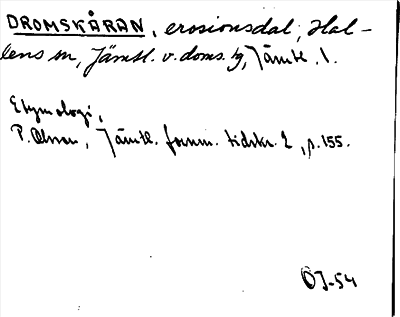 DROMSKÅRAN, erosionsdal, Hal-
lens sn, Jämtl. v. doms. tg, Jämtl. l.
Etymologi,
P. Olsson, Jämtl. fornm. tidskr. 2, p. 155.
ÖJ-54